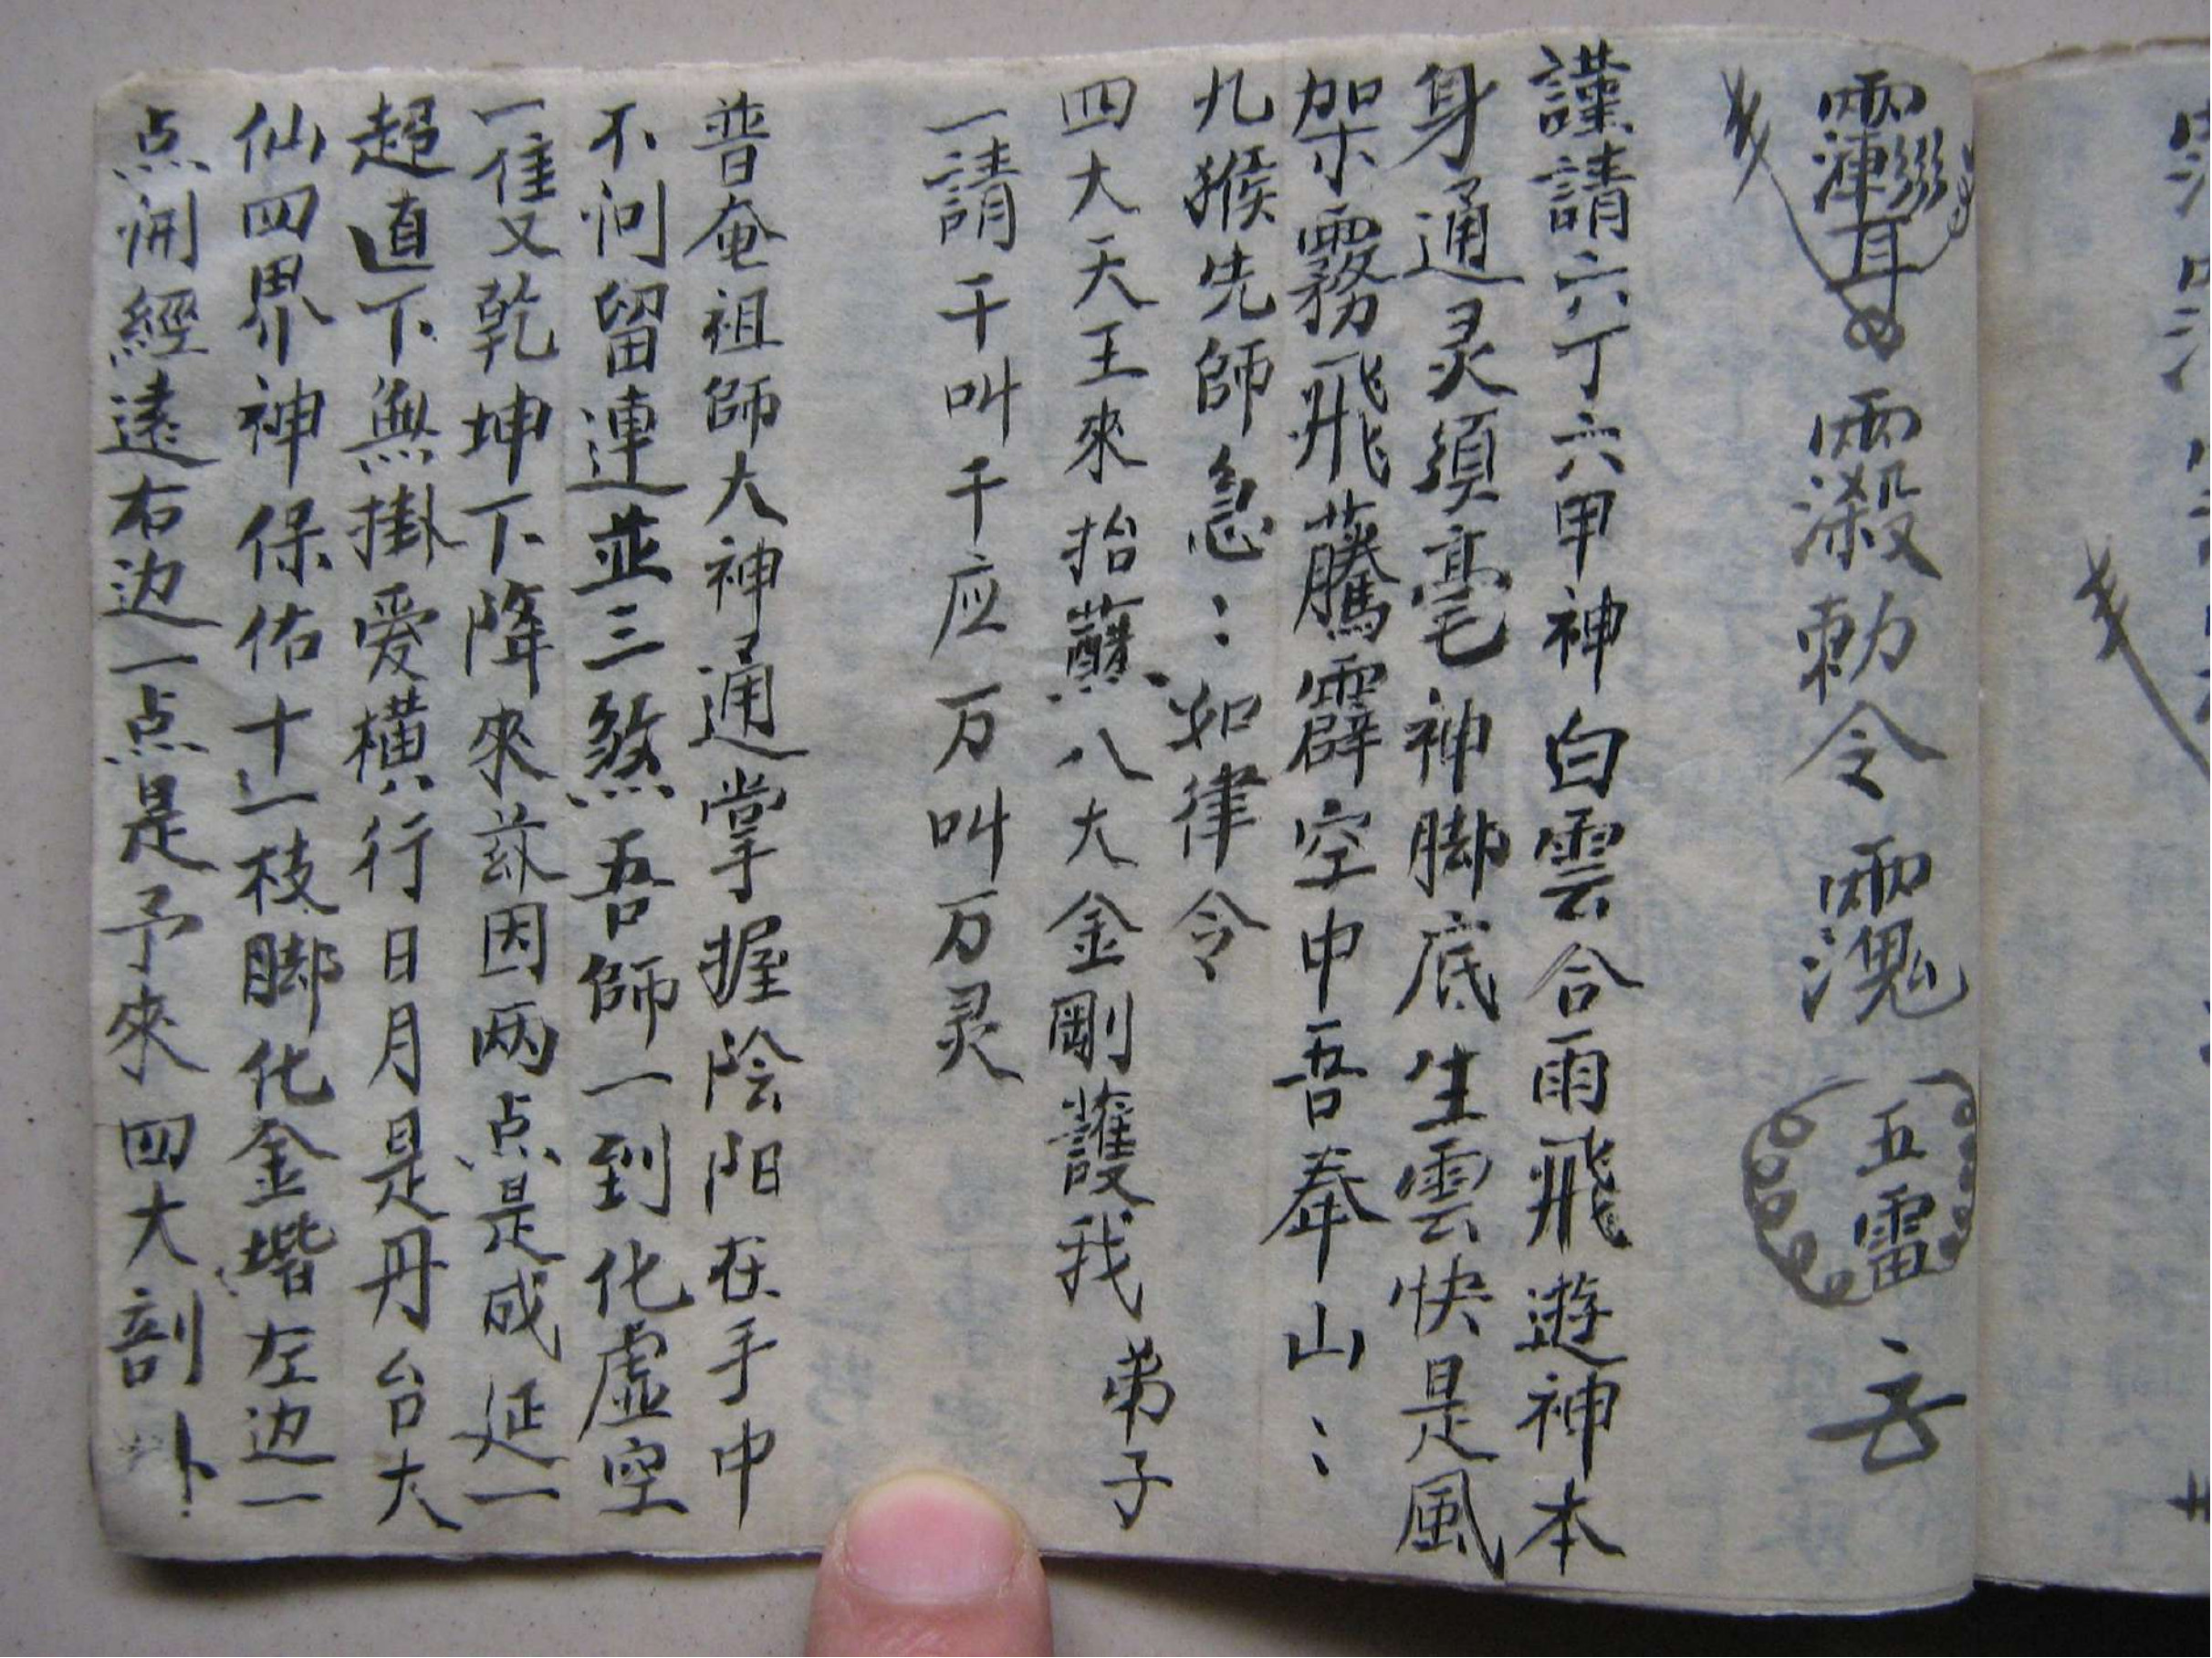 勅令 五雷
謹請六丁六甲神白雲合雨飛遊神本
身通灵須毫神脚底生雲快是風
架霧飛騰霹空中吾奉山：
九猴先師急：如律令
四大天王來抬 八大金剛護我弟子
一請千叫千应万叫万灵
普奄祖師大神通掌握陰阳在手中
不问留連並三煞吾師一到化虛空
一隻又乾坤下降來兹因两点是成延一
超直下無掛爱橫行日月是丹台大
仙四界神保佑十一枝脚化金堦左边一
点開經遠右边一点是予來四大部